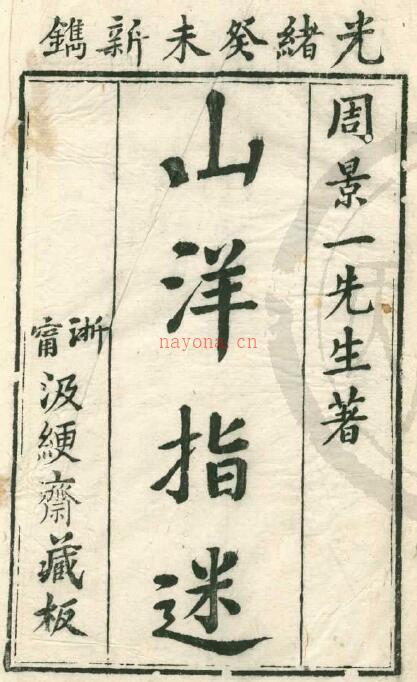 光緒癸未新鐫
周景一先生著
山洋指迷
浙甯汲綆齋藏板
nayona.cn